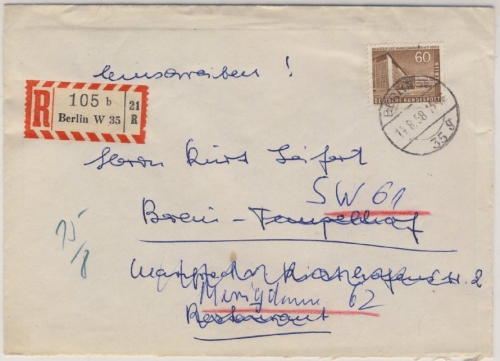 Einschreiben!
60
DEUTSCHE BUNDESPOST BERLIN
R 105 b 21
Berlin W 35 R
BERLIN
14.8.58
35 g
Herrn Kurt Seifert
SW 61
Berlin - Tempelhof
15/8
2
62
Restaurant